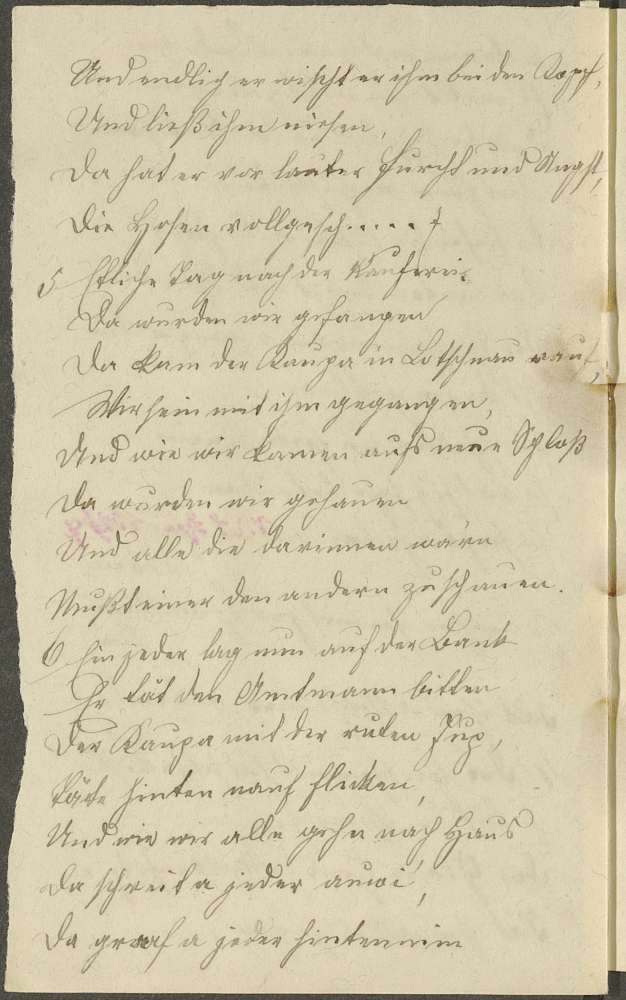 Und endlich erwischt er ihm bei den Kopf,
Und ließ ihm niesen,
Da hat er vor lauter Furcht und Angst,
Die Hosen vollgesch.....
5 Etliche Tag nach der Rauferei
Da wurden wir gefangen
Da kam der Kaupa in Lotschnau rauf,
Wir sein mit ihm gegangen,
Und wie wir kamen aufs neue Schloß
Da wurden wir gehauen
Und alle die darinnen warn
Mußt einer den andern zuschauen.
6 Ein jeder lag nun auf der Bank
Er tät den Amtmann bitten
Der Kaupa mit der roten Jup,
Täte hinten nauf flicken,
Und wie wir alle gehn nach Haus
Da schreit a jeder auwi,
Da graaf a jeder hinten